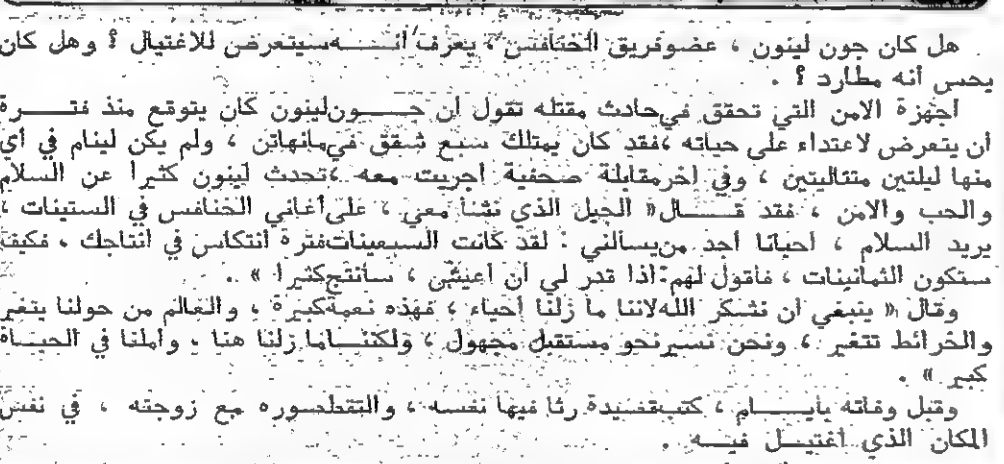 هل كان جون لينون ، عضو فريق الخنافس ، يعرف انـــه سيتعرض للاغتيال ؟ وهل كان
يحس أنه مطارد ؟ .
أجهزة الامن التي تحقق في حادث مقتله تقول ان جـــون لينون كان يتوقع منذ فتـــرة
أن يتعرض لاعتداء على حياته ، فقد كان يمتلك سبع شقق في مانهاتن ، ولم يكن لينام في أي
منها ليلتين متتاليتين ، وفي اخر مقابلة صحفية أجريت معه ، تحدث لينون كثيرا عن السلام
والحب والامن ، فقد قـــال « الجيل الذي نشأ معي ، على أغاني الخنافس في الستينات ،
يريد السلام ، أحيانا أجد من يسألني : لقد كانت السبعينات فترة انتكاس في انتاجك ، فكيف
ستكون الثمانينات ، فأقول لهم : اذا قدر لي أن أعيش ، سأنتج كثيرا » .
وقال « ينبغي ان نشكر الله لاننا ما زلنا أحياء ، فهذه نعمة كبيرة ، والعالم من حولنا يتغير
والخرائط تتغير ، ونحن نسير نحو مستقبل مجهول ، ولكننـــا ما زلنا هنا ، وأملنا في الحيـــاة
كبير » .
وقبل وفاته بأيـــام ، كتب قصيدة رثا فيها نفسه ، والتقط صوره مع زوجته ، في نفس
المكان الذي اغتيـــل فيـــه .